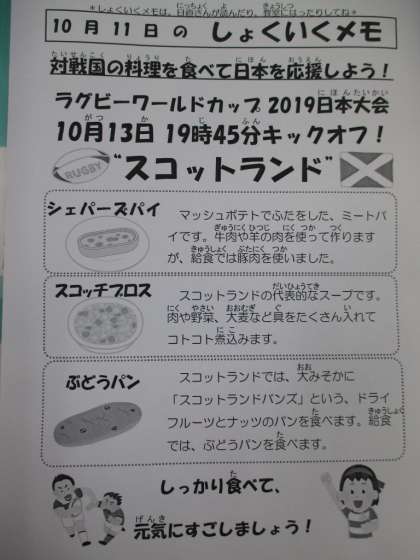 ＊しょくいくメモは、日直さんが読んだり、教室にはったりしてね＊
10月11日の しょくいくメモ
対戦国の料理を食べて日本を応援しよう！
ラグビーワールドカップ 2019日本大会
10月13日 19時45分キックオフ！
RUGBY
“スコットランド”
シェパーズパイ
マッシュポテトでふたをした、ミートパ
イです。牛肉や羊の肉を使って作ります
が、給食では豚肉を使いました。
スコッチブロス
スコットランドの代表的なスープです。
肉や野菜、大麦など具をたくさん入れて
コトコト煮込みます。
ぶどうパン
スコットランドでは、大みそかに
「スコットランドバンズ」という、ドライ
フルーツとナッツのパンを食べます。給食
では、ぶどうパンを食べます。
しっかり食べて、
元気にすごしましょう！